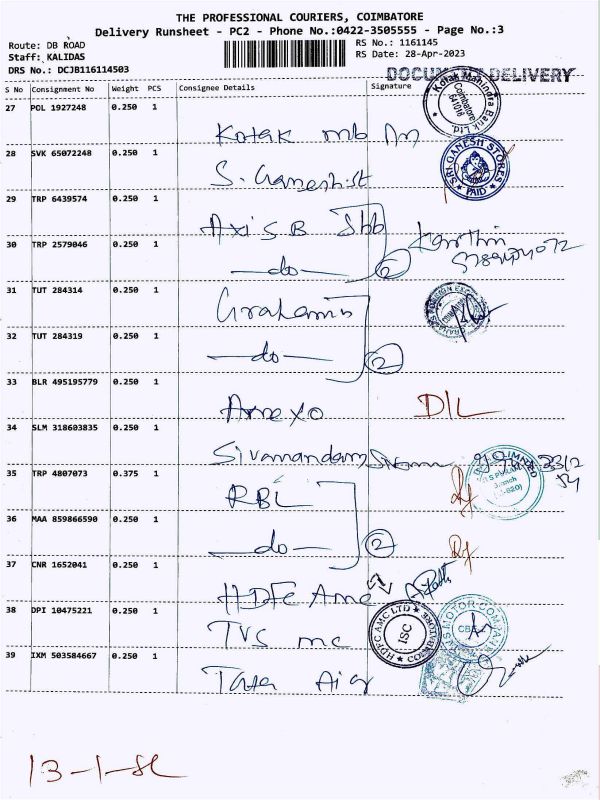 THE PROFESSIONAL COURIERS, COIMBATORE
Delivery Runsheet - PC2 - Phone No.:0422-3505555 - Page No.:3
Route: DB ROAD
Staff: KALIDAS
DRS No.: DCJB116114503
RS No.: 1161145
RS Date: 28-Apr-2023
DOCUMENT DELIVERY
S No Consignment No Weight PCS Consignee Details Signature
27 POL 1927248 0.250 1
Kotak mb
Kotak Mahindra Bank Ltd. Coimbatore 641018
28 SVK 65072248 0.250 1
S. Ganesh st
SRI GANESH STORES PAID
29 TRP 6439574 0.250 1
Axis B
30 TRP 2579046 0.250 1
do 2
31 TUT 284314 0.250 1
Grahams
32 TUT 284319 0.250 1
do 2
33 BLR 495195779 0.250 1
D/L
34 SLM 318603835 0.250 1
Sivanandam
35 TRP 4807073 0.375 1
RBL
36 MAA 859866590 0.250 1
do 2
37 CNR 1652041 0.250 1
HDFC Amc
HDFC AMC LTD ISC COIMBATORE
38 DPI 10475221 0.250 1
TVS mc
TVS MOTOR COMPANY
39 IXM 503584667 0.250 1
Tata Aig
13-1-SL